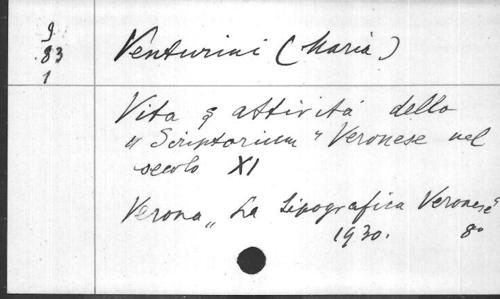 J
83
1
Venturini (Maria)
Vita e attività dello
"Scriptorium" Veronese nel
secolo XI
Verona, "La Tipografica Veronese"
1930. 8º